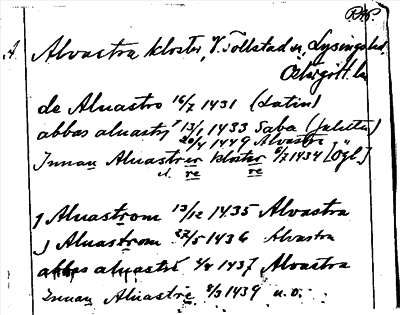 RAP.
A. Alvastra kloster, V. Tollstad sn, Lysings hd,
Östergötl. l
de Aluastro 16/7 1431 (Latin)
abbas aluastr 13/1 1433 Saba (Juleta)
20/4 1449 Alvastra
Innan Aluastrer kloster 6/7 1434 [Ögl.]
re re
j Aluastrom 13/12 1435 Alvastra
j Aluastrom 27/5 1436 Alvastra
abbas aluastri 4/4 1437 Alvastra
Innan Aluastre 8/3 1439 u.o.